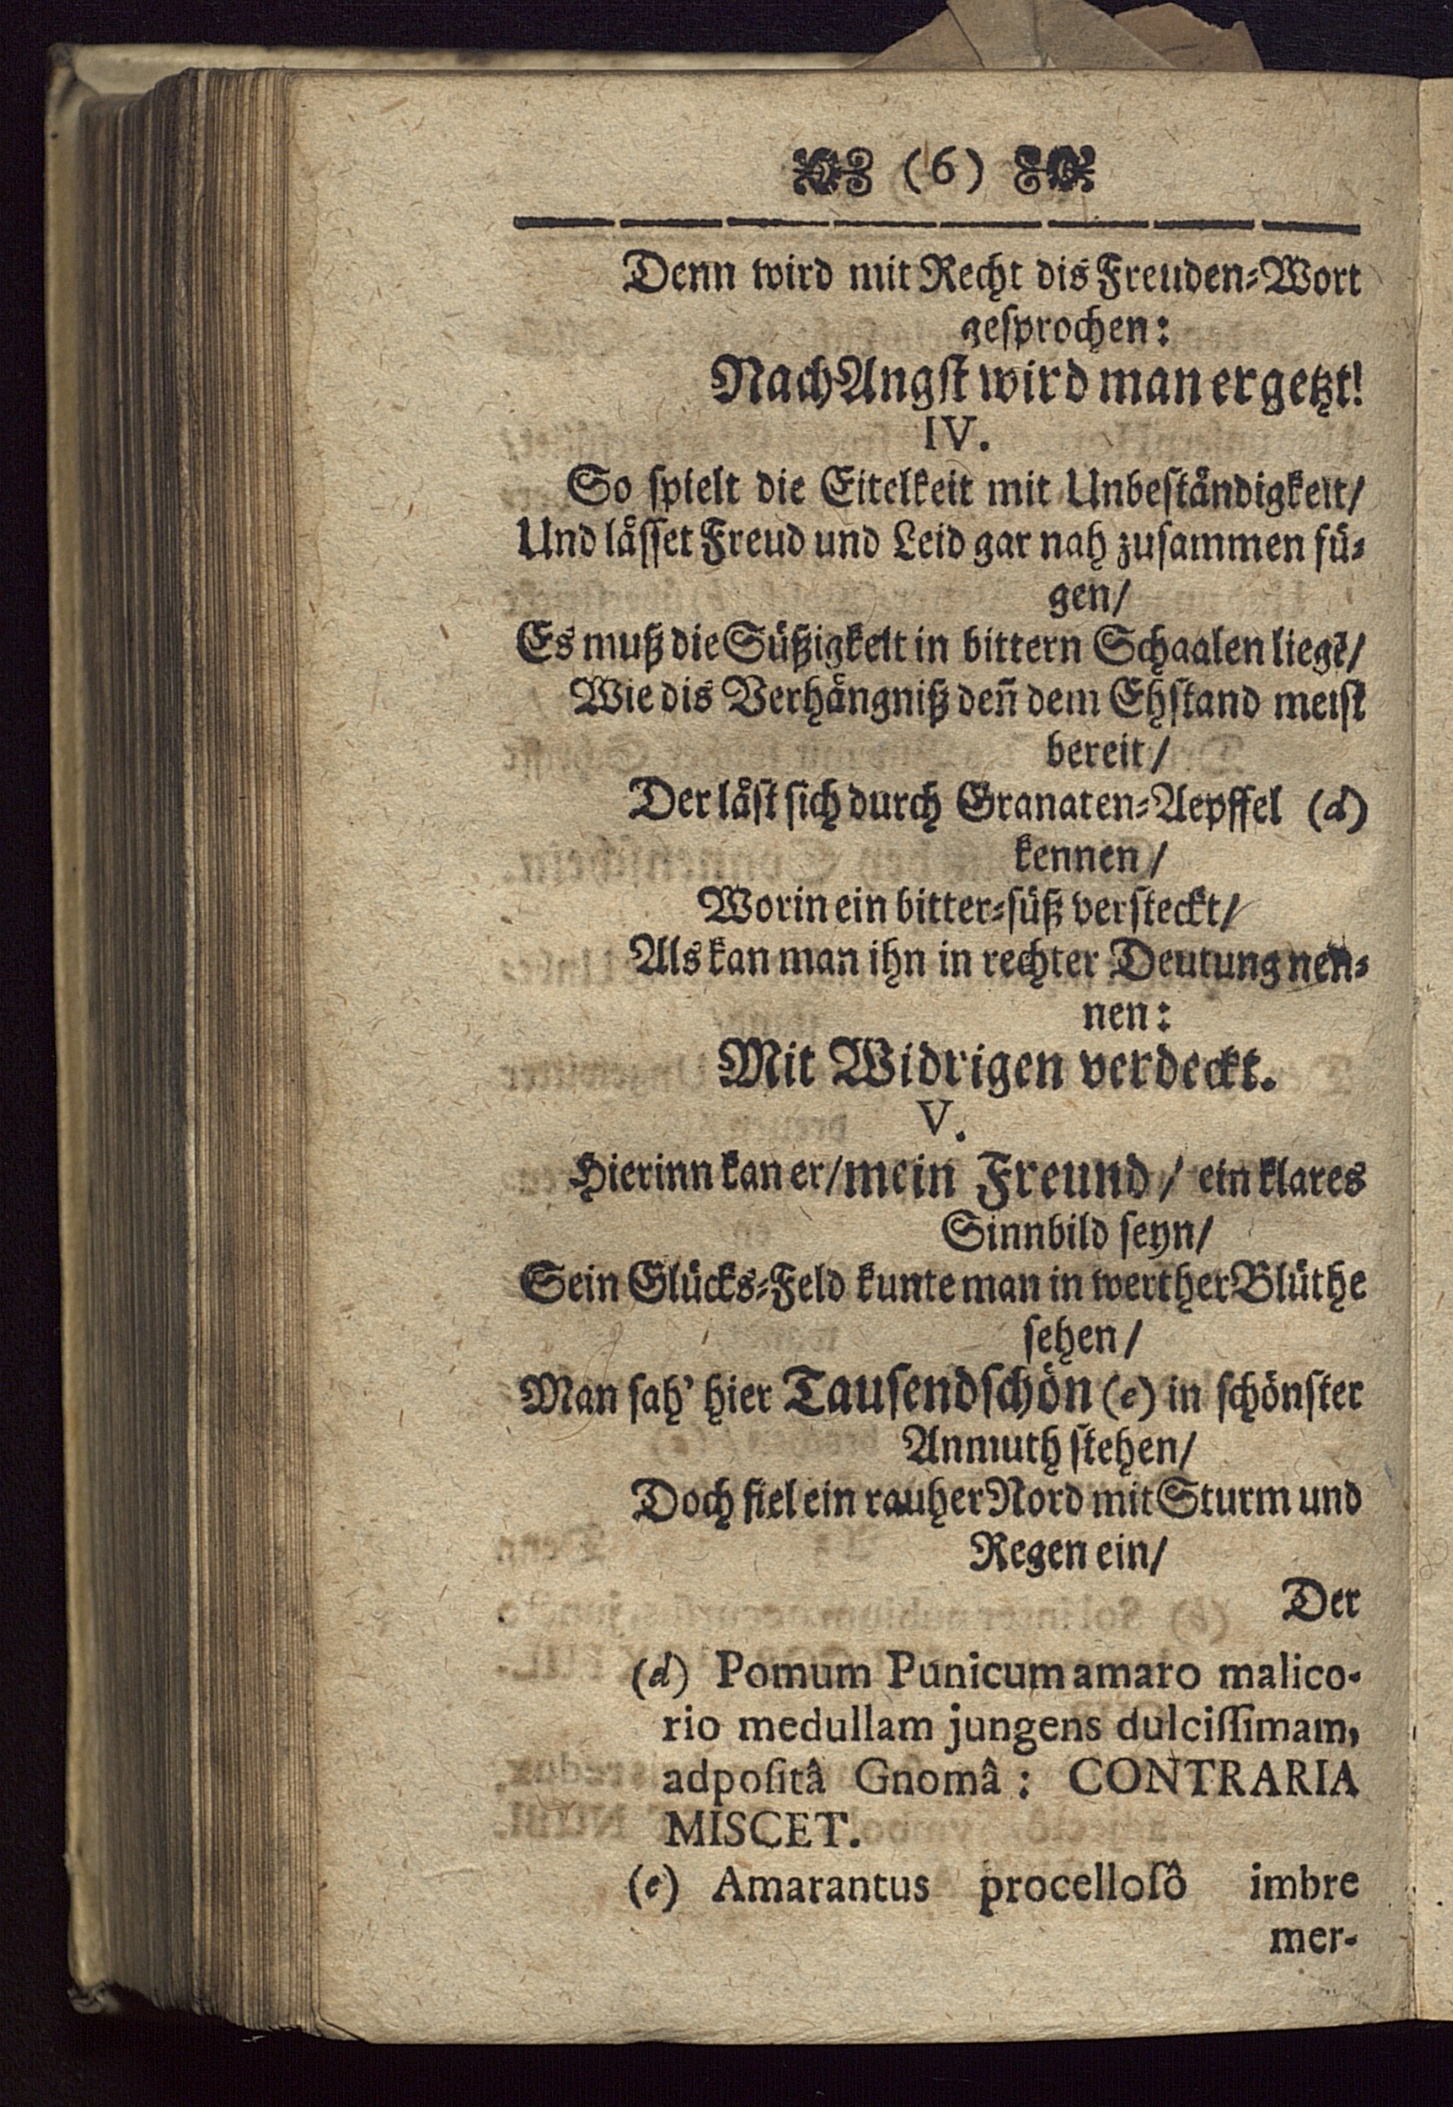 (6)
Denn wird mit Recht dis Freuden⸗Wort
geſprochen:
Nach Angſt wird man ergetzt!
IV.
So ſpielt die Eitelkeit mit Unbeſtändigkeit/
Und låſſet Freud und Leid gar nah zuſammen fü⸗
gen/
Es muß die Süßigkeit in bittern Schaalen liegē/
Wie dis Verhängniß den̄ dem Ehſtand meiſt
bereit/
Der låſt ſich durch Granaten⸗Aepffel (d)
kennen/
Worin ein bitter⸗ſüß verſteckt/
Als kan man ihn in rechter Deutung nen⸗
nen:
Mit Widrigen verdeckt.
V.
Hierinn kan er/ mein Freund/ ein klares
Sinnbild ſeyn/
Sein Glücks⸗Feld kunte man in werther Blüthe
ſehen/
Man ſah' hier Tauſendſchön (e) in ſchönſter
Anmuth ſtehen/
Doch fiel ein rauher Nord mit Sturm und
Regen ein/
Der
(d) Pomum Punicum amaro malico-
rio medullam jungens dulciſſimam,
adpoſitâ Gnomâ: CONTRARIA
MISCET.
(e) Amarantus procelloſô imbre
mer-